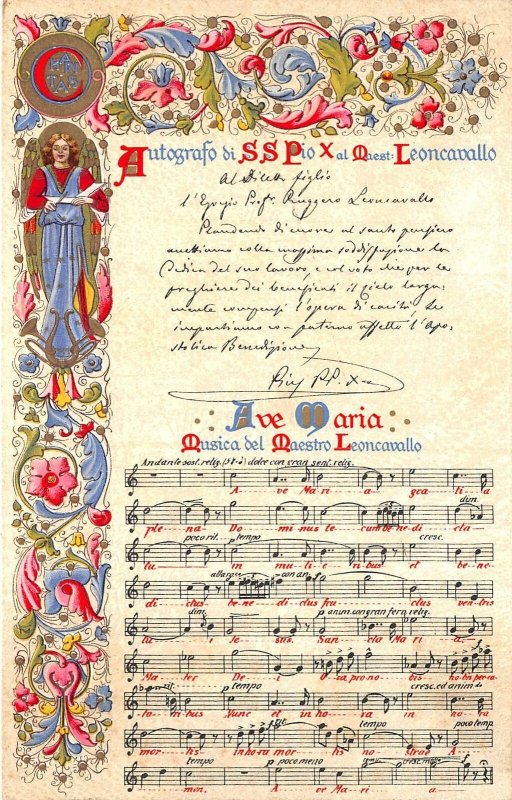 CHARITAS
Autografo di SS Pio X al Maest: Leoncavallo
Al Diletto figlio
l'Egregio Profr. Ruggero Leoncavallo
Plaudendo di cuore al santo pensiero
accettiamo colla massima soddisfazione la
Dedica del suo lavoro, e col voto che per le
preghiere dei beneficati il cielo larga-
mente compensi l'opera di carità, Le
impartiamo con paterno affetto l'Apo-
stolica Benedizione
Pius PP. X
Ave Maria
Musica del Maestro Leoncavallo
Andante sost. relig. dolce con gran sent. relig.
A ve Ma ri a gra ti a
dim.
ple na Do mi nus te cum be ne di cta
poco rit. p tempo cresc.
tu in mu li e ri bus et be ne
allarg. con an. f
di ctus be ne di ctus fru ctus ven tris
dim. p anim. con gran ferv. relig.
tu i Ie sus. San cta Ma ri a
f
Ma ter De i O ra pro no bis
rit. p tempo cresc. ed anim.
to ri bus Nunc et in ho ra in ho ra
poco temp.
mor tis in ho ra mor tis no strae A
tempo p poco meno
min. A ve Ma ri a